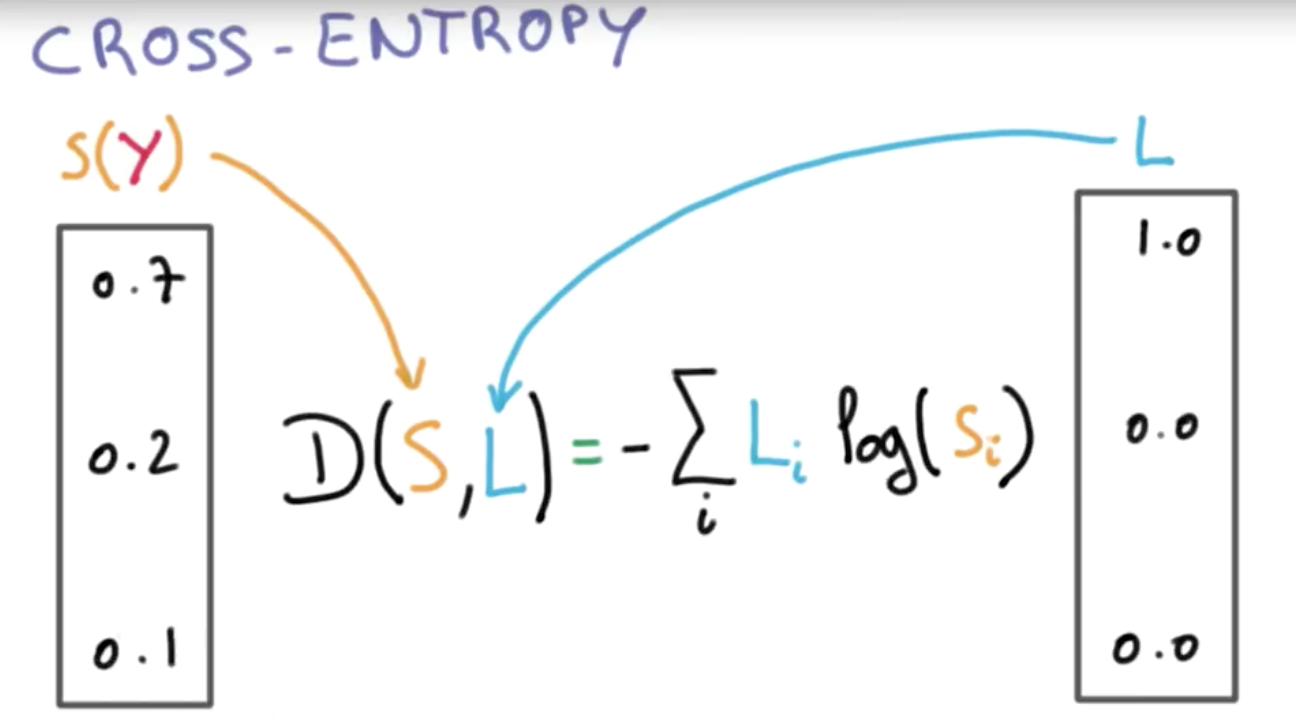 CROSS-ENTROPY
S(Y)
L
0.7
0.2
0.1
D(S,L) = -∑ᵢ Lᵢ log(Sᵢ)
1.0
0.0
0.0